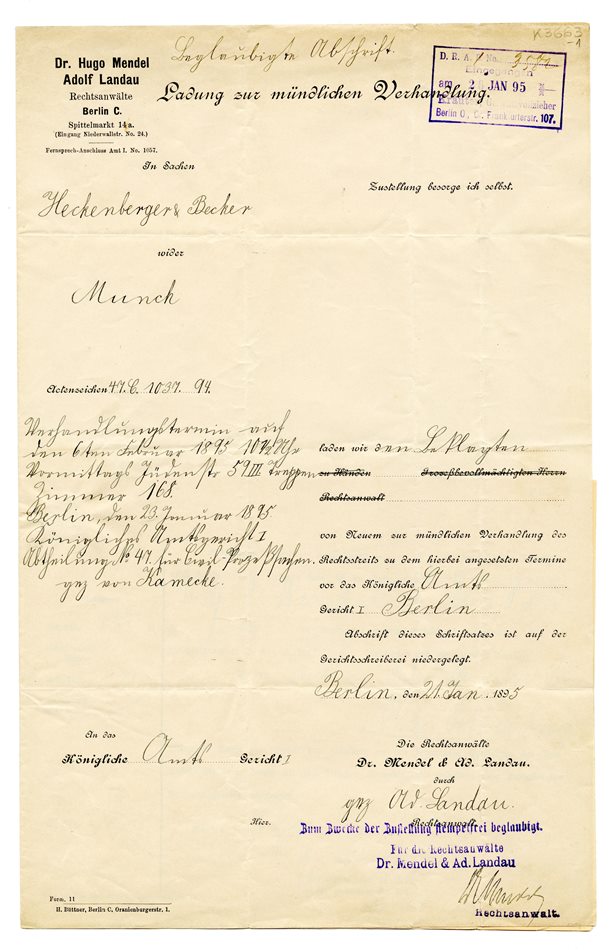 K3663
-1
Beglaubigte Abschrift.
Dr. Hugo Mendel
Adolf Landau
Rechtsanwälte
Berlin C.
Spittelmarkt 14a.
(Eingang Niederwallstr. No. 24.)
Fernsprech-Anschluss Amt I. No. 1057.
D. R. A. No.
Eingegangen
am 2 JAN 95
Berlin O., Gr. Frankfurterstr. 107.
Ladung zur mündlichen Verhandlung.
In Sachen
Zustellung besorge ich selbst.
Heckenberger & Becker
wider
Munch
Actenzeichen 47. C. 1037. 94.
Verhandlungstermin auf
den 6ten Februar 1895 10½ Uhr
Vormittags Jüdenstr 59 III Treppen
Zimmer 168.
Berlin, den 23. Januar 1895
Königliches Amtsgericht I
Abtheilung No 47. für Civil-Prozeßsachen.
gez von Kamecke.
laden wir den Beklagten
zu Händen Prozeßbevollmächtigten Herrn
Rechtsanwalt
von Neuem zur mündlichen Verhandlung des
Rechtsstreits zu dem hierbei angesetzten Termine
vor das Königliche Amts
Gericht I Berlin
Abschrift dieses Schriftsatzes ist auf der
Gerichtsschreiberei niedergelegt.
Berlin, den 21. Jan. 1895
An das
Königliche Amts Gericht I
Hier.
Die Rechtsanwälte
Dr. Mendel & Ad. Landau.
durch
gez Ad. Landau.
Rechtsanwalt
Zum Zwecke der Zustellung stempelfrei beglaubigt.
Für die Rechtsanwälte
Dr. Mendel & Ad. Landau
Rechtsanwalt.
Form. 11
H. Büttner, Berlin C, Oranienburgerstr. 1.